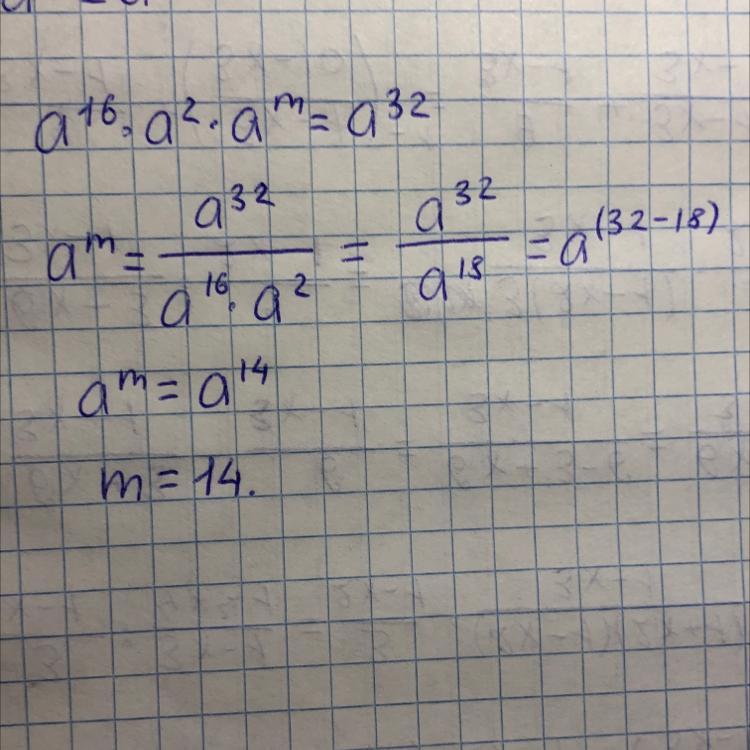 a¹⁶ · a² · aᵐ = a³²
aᵐ = a³² / (a¹⁶ · a²) = a³² / a¹⁸ = a⁽³²⁻¹⁸⁾
aᵐ = a¹⁴
m = 14.